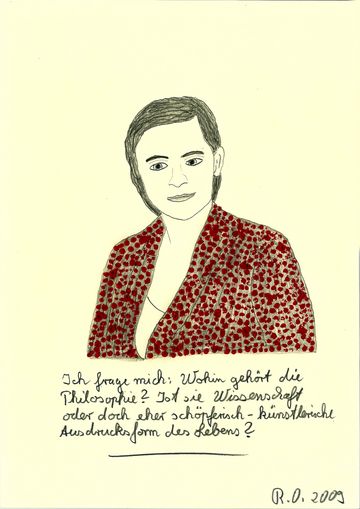 Ich frage mich: Wohin gehört die
Philosophie? Ist sie Wissenschaft
oder doch eher schöpferisch-künstlerische
Ausdrucksform des Lebens?
R.O. 2009